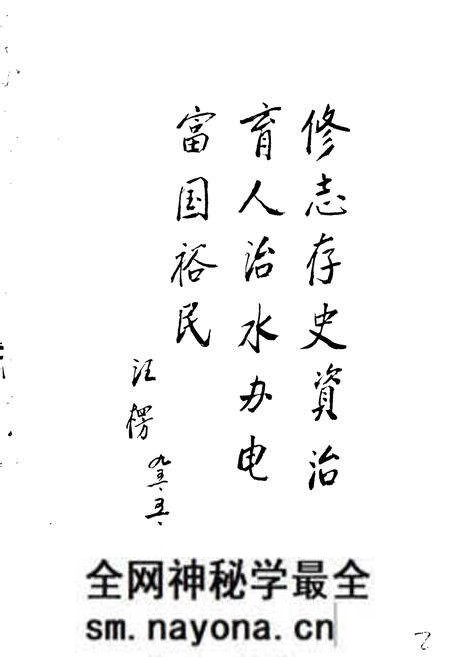 修志存史資治
育人治水办电
富国裕民
汪
全网神秘学最全
sm.nayona.cn